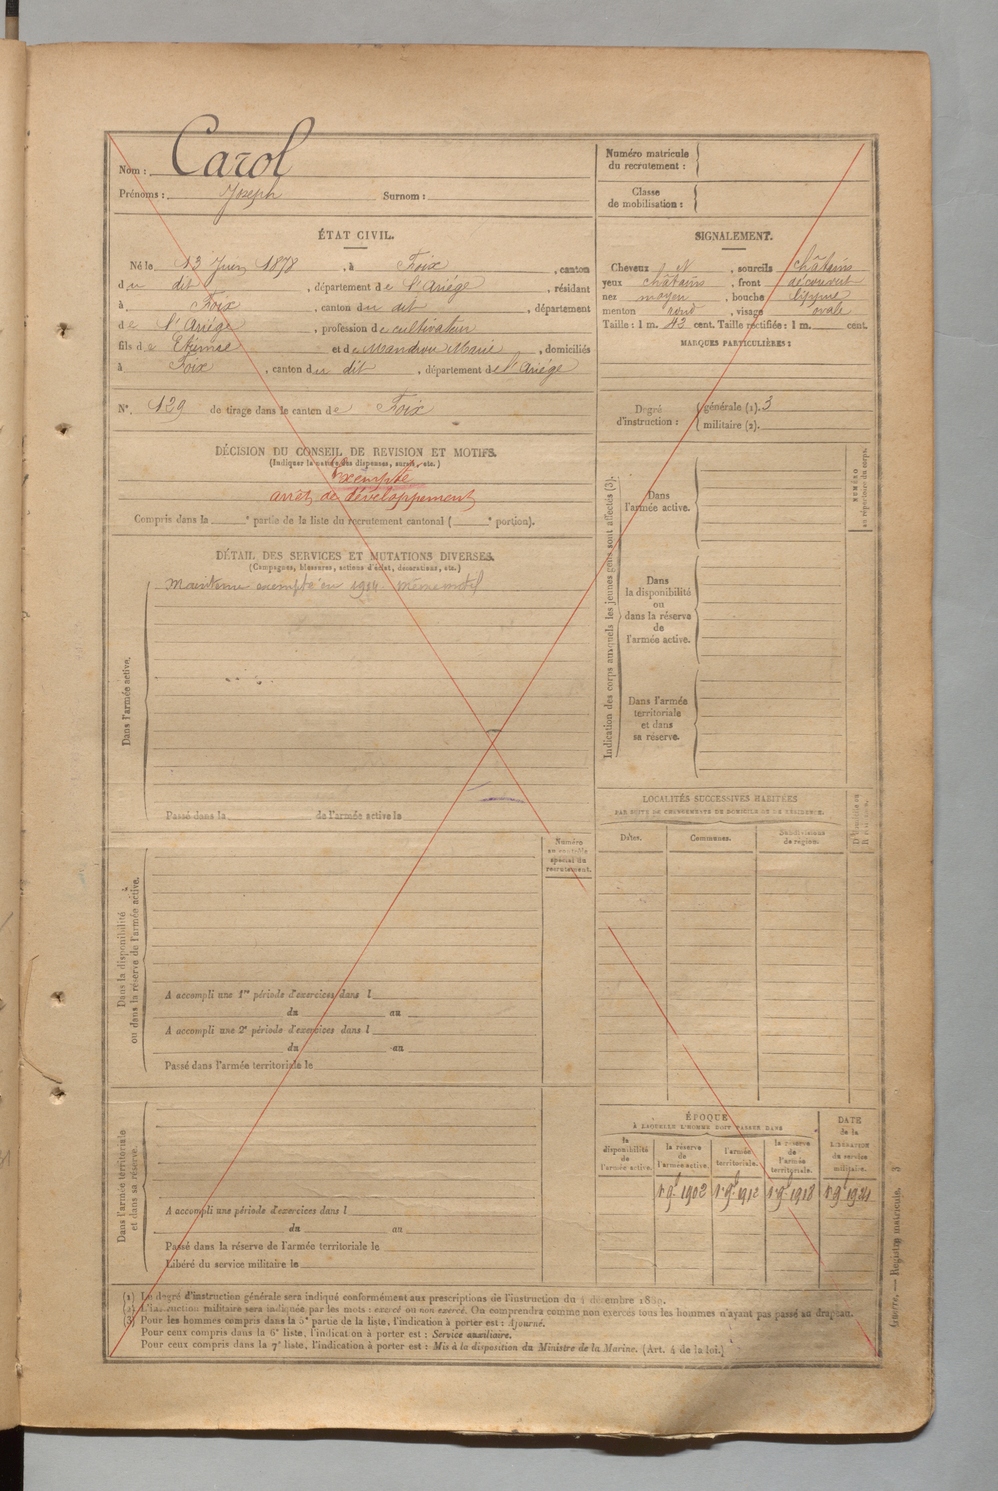 Nom : Carol
Prénoms : Joseph Surnom :
Numéro matricule
du recrutement :
Classe
de mobilisation :
ÉTAT CIVIL.
Né le 13 Juin 1878, à Foix, canton
du dit, département de l'Ariége, résidant
à Foix, canton du dit, département
de l'Ariége, profession de cultivateur
fils de Etienne et de Mandrou Marie, domiciliés
à Foix, canton du dit, département de l'Ariége
N°. 129 de tirage dans le canton de Foix
SIGNALEMENT.
Cheveux N, sourcils châtains
yeux châtains, front découvert
nez moyen, bouche
menton rond, visage ovale
Taille : 1 m. 43 cent. Taille rectifiée : 1 m. cent.
MARQUES PARTICULIÈRES :
Degré
d'instruction :
générale (1). 3
militaire (2).
DÉCISION DU CONSEIL DE REVISION ET MOTIFS.
(Indiquer la nature des dispenses, sursis, etc.)
Exempté
arrêt de développement
Compris dans la e partie de la liste du recrutement cantonal ( e portion).
DÉTAIL DES SERVICES ET MUTATIONS DIVERSES.
(Campagnes, blessures, actions d'éclat, décorations, etc.)
Maintenu exempté en 1914 même motif
Dans l'armée active.
Passé dans la de l'armée active le
Indication des corps auxquels les jeunes gens sont affectés (3).
Dans
l'armée active.
Dans
la disponibilité
ou
dans la réserve
de
l'armée active.
Dans l'armée
territoriale
et dans
sa réserve.
NUMÉRO
au répertoire du corps.
LOCALITÉS SUCCESSIVES HABITÉES
PAR SUITE DE CHANGEMENTS DE DOMICILE OU DE RÉSIDENCE.
Dates.
Communes.
Subdivisions
de région.
D. domicile ou
R. résidence.
Numéro
au contrôle
spécial du
recrutement.
Dans la disponibilité
ou dans la réserve de l'armée active.
A accompli une 1re période d'exercices dans l
du au
A accompli une 2e période d'exercices dans l
du au
Passé dans l'armée territoriale le
Dans l'armée territoriale
et dans sa réserve.
A accompli une période d'exercices dans l
du au
Passé dans la réserve de l'armée territoriale le
Libéré du service militaire le
ÉPOQUE
À LAQUELLE L'HOMME DOIT PASSER DANS
la
disponibilité
de
l'armée active.
la réserve
de
l'armée active.
l'armée
territoriale.
la réserve
de
l'armée
territoriale.
DATE
de la
LIBÉRATION
du service
militaire.
1902 1912 1918 1924
(1) Le degré d'instruction générale sera indiqué conformément aux prescriptions de l'instruction du 4 décembre 1889.
(2) L'instruction militaire sera indiquée par les mots : exercé ou non exercé. On comprendra comme non exercés tous les hommes n'ayant pas passé au drapeau.
(3) Pour les hommes compris dans la 5e partie de la liste, l'indication à porter est : Ajourné.
Pour ceux compris dans la 6e liste, l'indication à porter est : Service auxiliaire.
Pour ceux compris dans la 7e liste, l'indication à porter est : Mis à la disposition du Ministre de la Marine. (Art. 4 de la loi.)
Guerre. — Registre matricule. 3